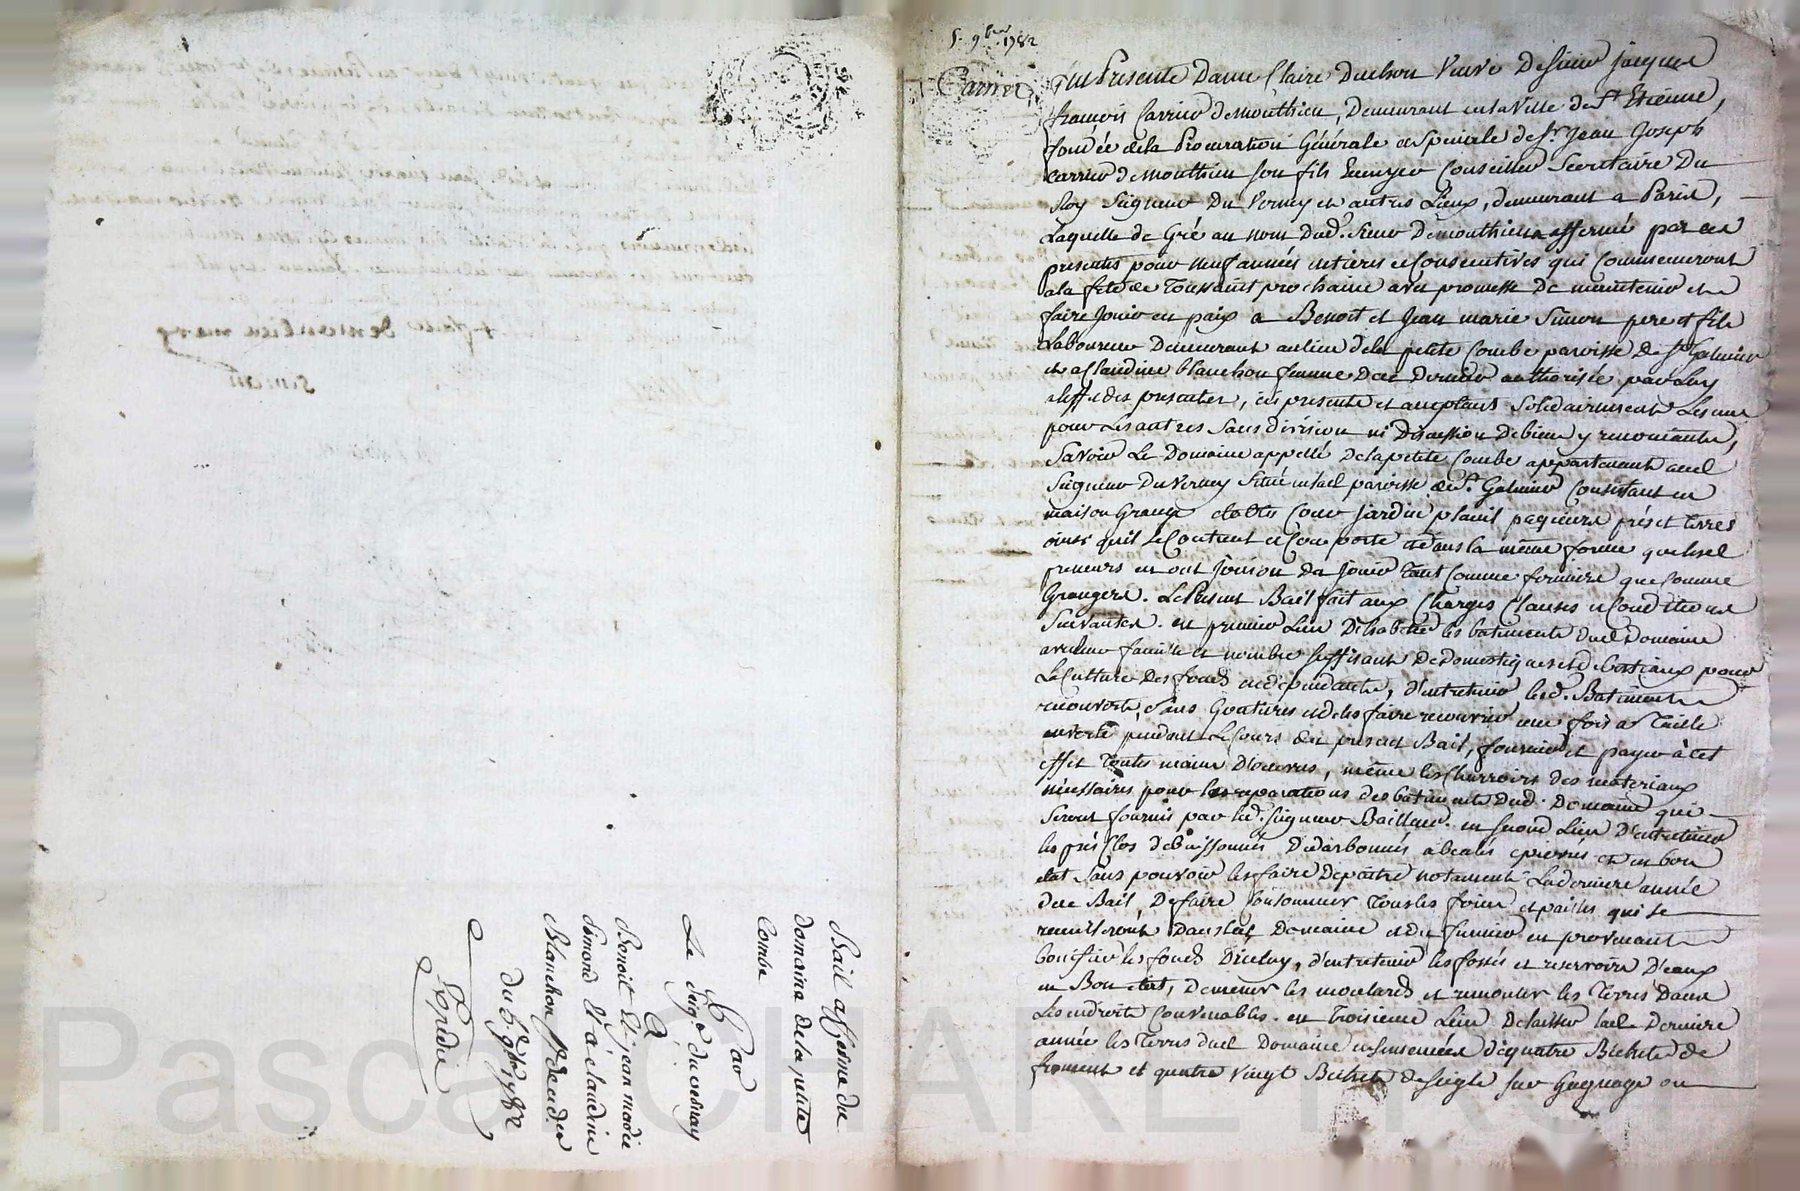 5. 9bre 1782
Carrier
fut Presente Dame Claire Duchon Veuve De sieur jacques
françois Carrier demonthieu, Demeurant en la Ville de St Etienne,
fondée de la Procuration Générale et Speciale de Sr Jean Joseph
carrier demonthieu son fils Ecuyer Conseiller Secretaire Du
Roy Seigneur Du Verney et autres Lieux, demeurant a Paris,
Laquelle de Gré au nom Dud. sieur Demonthieu affermé par ces
presentes pour neuf années entieres et Consecutives qui Commenceront
a la fete de Toussaint prochaine avec promesse De maintenir et
faire Jouir en paix a Benoit et Jean marie Simon pere et fils
Laboureur Demeurant au lieu de la petite Combe paroisse De St Galmier
et a Claudine blanchon femme Dce Dernier authorisée par Luy
a l'effet des presentes, icy presents et acceptants Solidairement Les uns
pour Les autres Sans division ni Discussion De biens y renonçants,
Savoir Le Domaine appellé De la petite Combe appartenant aud
Seigneur Du Verney Situé en lad paroisse de St Galmier Consistant en
maison Grange etables Cour Jardin plassil paquiers prés et terres
ainsi quil Se Contient et Comporte et dans la même forme que lesd
preneurs en ont joui ou dû jouir tant Comme fermiers que Comme
Grangers. Le Present Bail fait aux Charges Clauses et Conditions
Suivantes. en premier Lieu D'habiter les batiments dud Domaine
avec leur famille et nombre Suffisant De domestiques et de bestiaux pour
La Culture Des fonds en dependants, d'entretenir lesd. Batiments
recouverts, Sans Goutieres et de les faire recouvrir une fois a Taille
ouverte pendant Le Cours du present Bail, fournir et payer à cet
effet toutes mains D'oeuvres, même les Charrois des materiaux
nécessaires pour les reparations des batiments Dud. Domaine qui
Seront fournis par led. Seigneur Bailleur. en Second Lieu D'entretenir
les prés Clos debuissonnés Dedarbonnés abealés epierrés et en bon
etat Sans pouvoir les faire Depaitre notament La derniere année
du Bail, De faire Consommer Tous les foins et pailles qui Se
recueilleront Dans led. Domaine et du fumier en provenant
bonifier les fonds D'iceluy, d'entretenir les fossés et reservoirs D'eaux
en Bon etat, De mener les moulards et remonter les Terres Dans
Les endroits Convenables. en Troisieme Lieu De laisser lad. Derniere
année les Terres dud Domaine ensemencées de quatre Bichets de
froment et quatre vingt Bichets de Seigle Sur Gagnage ou
Simon
Bail afferme du
Domaine de la petite
Combe
Par
Le Seigr du vernay
A
Benoit et jean marie
Simond et a claudine
Blanchon
du 5e 9bre 1782
Expedié
Pascal CHARETRON